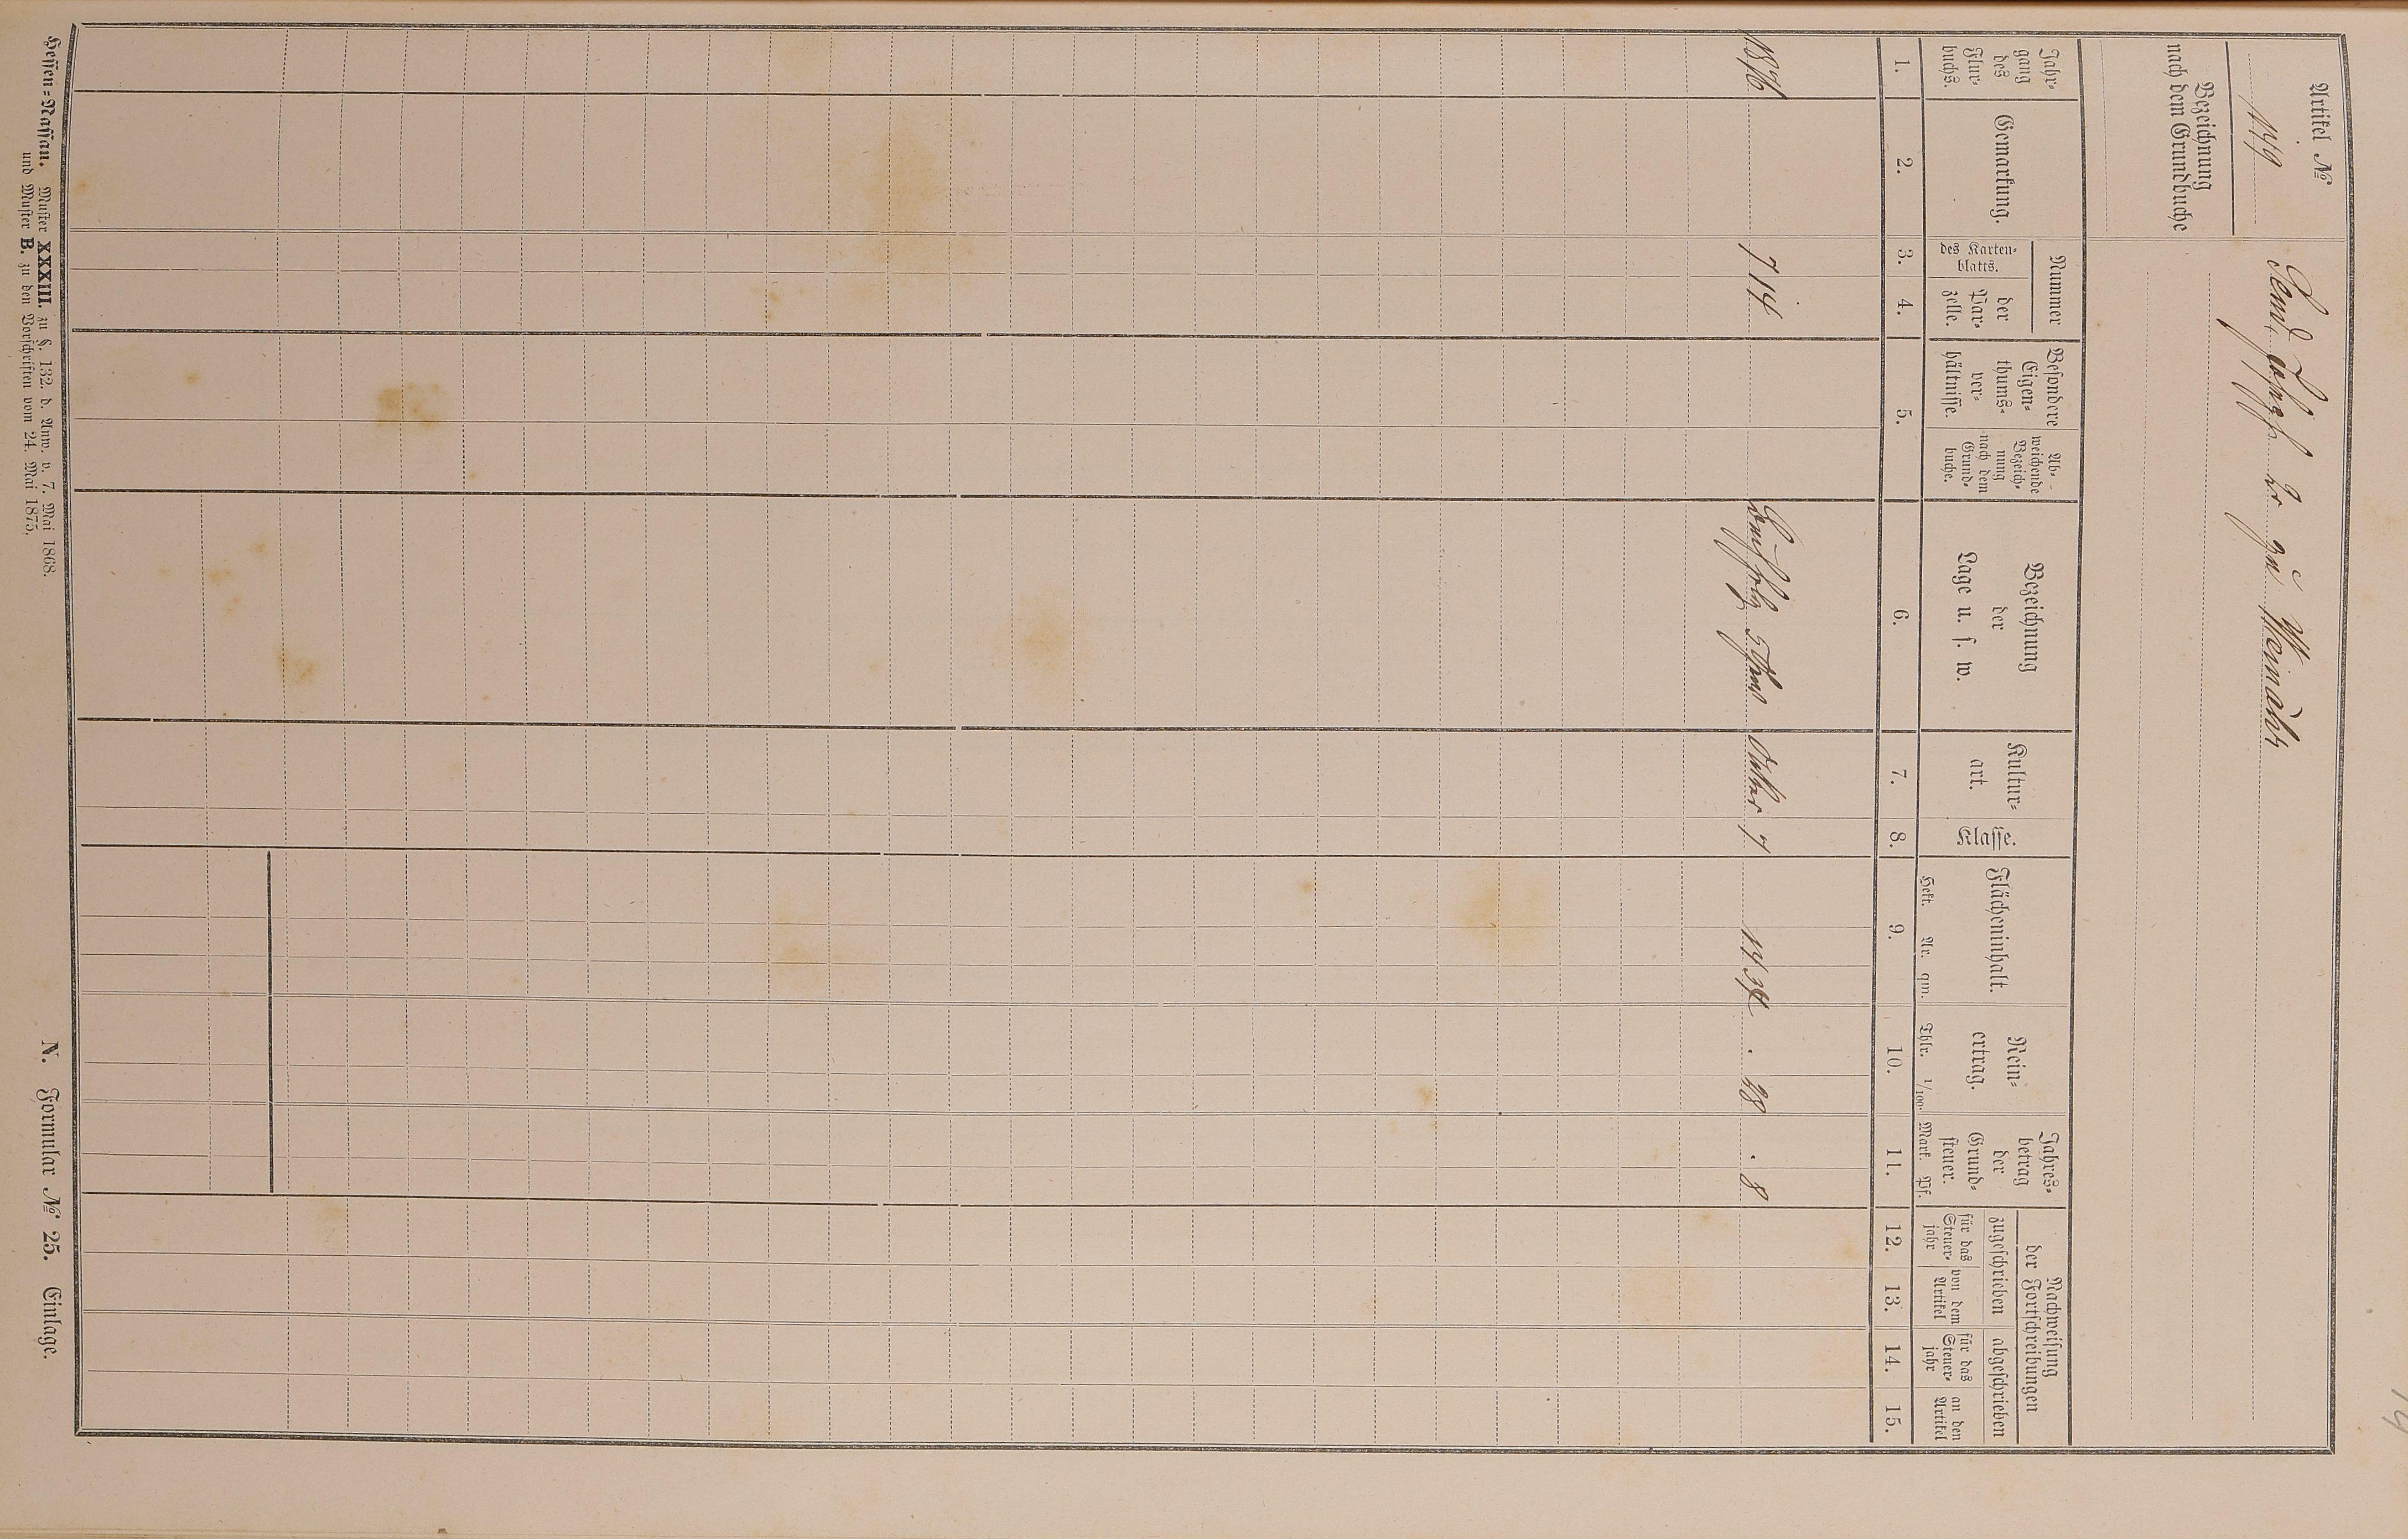 Artikel №
119
Bezeichnung
nach dem Grundbuche
Jahr-
gang
des
Flur-
buchs.
Gemarkung.
Nummer
des Karten-
blatts.
der
Par-
zelle.
Besondere
Eigen-
thums-
ver-
hältnisse.
Ab-
weichende
Bezeich-
nung
nach dem
Grund-
buche.
Bezeichnung
der
Lage u. s. w.
Kultur-
art.
Klasse.
Flächeninhalt.
Hekt. Ar. qm.
Rein-
ertrag.
Thlr. 1/100.
Jahres-
betrag
der
Grund-
steuer.
Mark Pf.
Nachweisung
der Fortschreibungen
zugeschrieben
abgeschrieben
für das
Steuer-
jahr
von dem
Artikel
für das
Steuer-
jahr
an den
Artikel
1. 2. 3. 4. 5. 6. 7. 8. 9. 10. 11. 12. 13. 14. 15.
1876 7 14 Acker 7 11 34 . 28 . 8
Hessen-Nassau. Muster XXXIII. zu §. 132. d. Anw. v. 7. Mai 1868.
und Muster B. zu den Vorschriften vom 24. Mai 1875.
N. Formular № 25. Einlage.